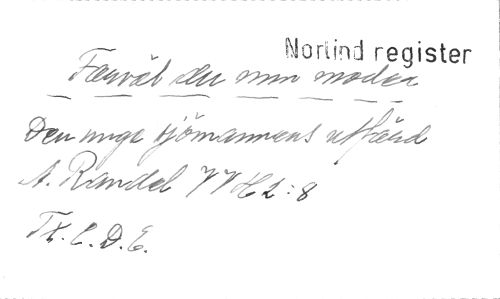 Norlind register
Farväl du min moder
Den unge sjömannens utfärd
A. Randel VVH 2:8
Tr. C. D. E.